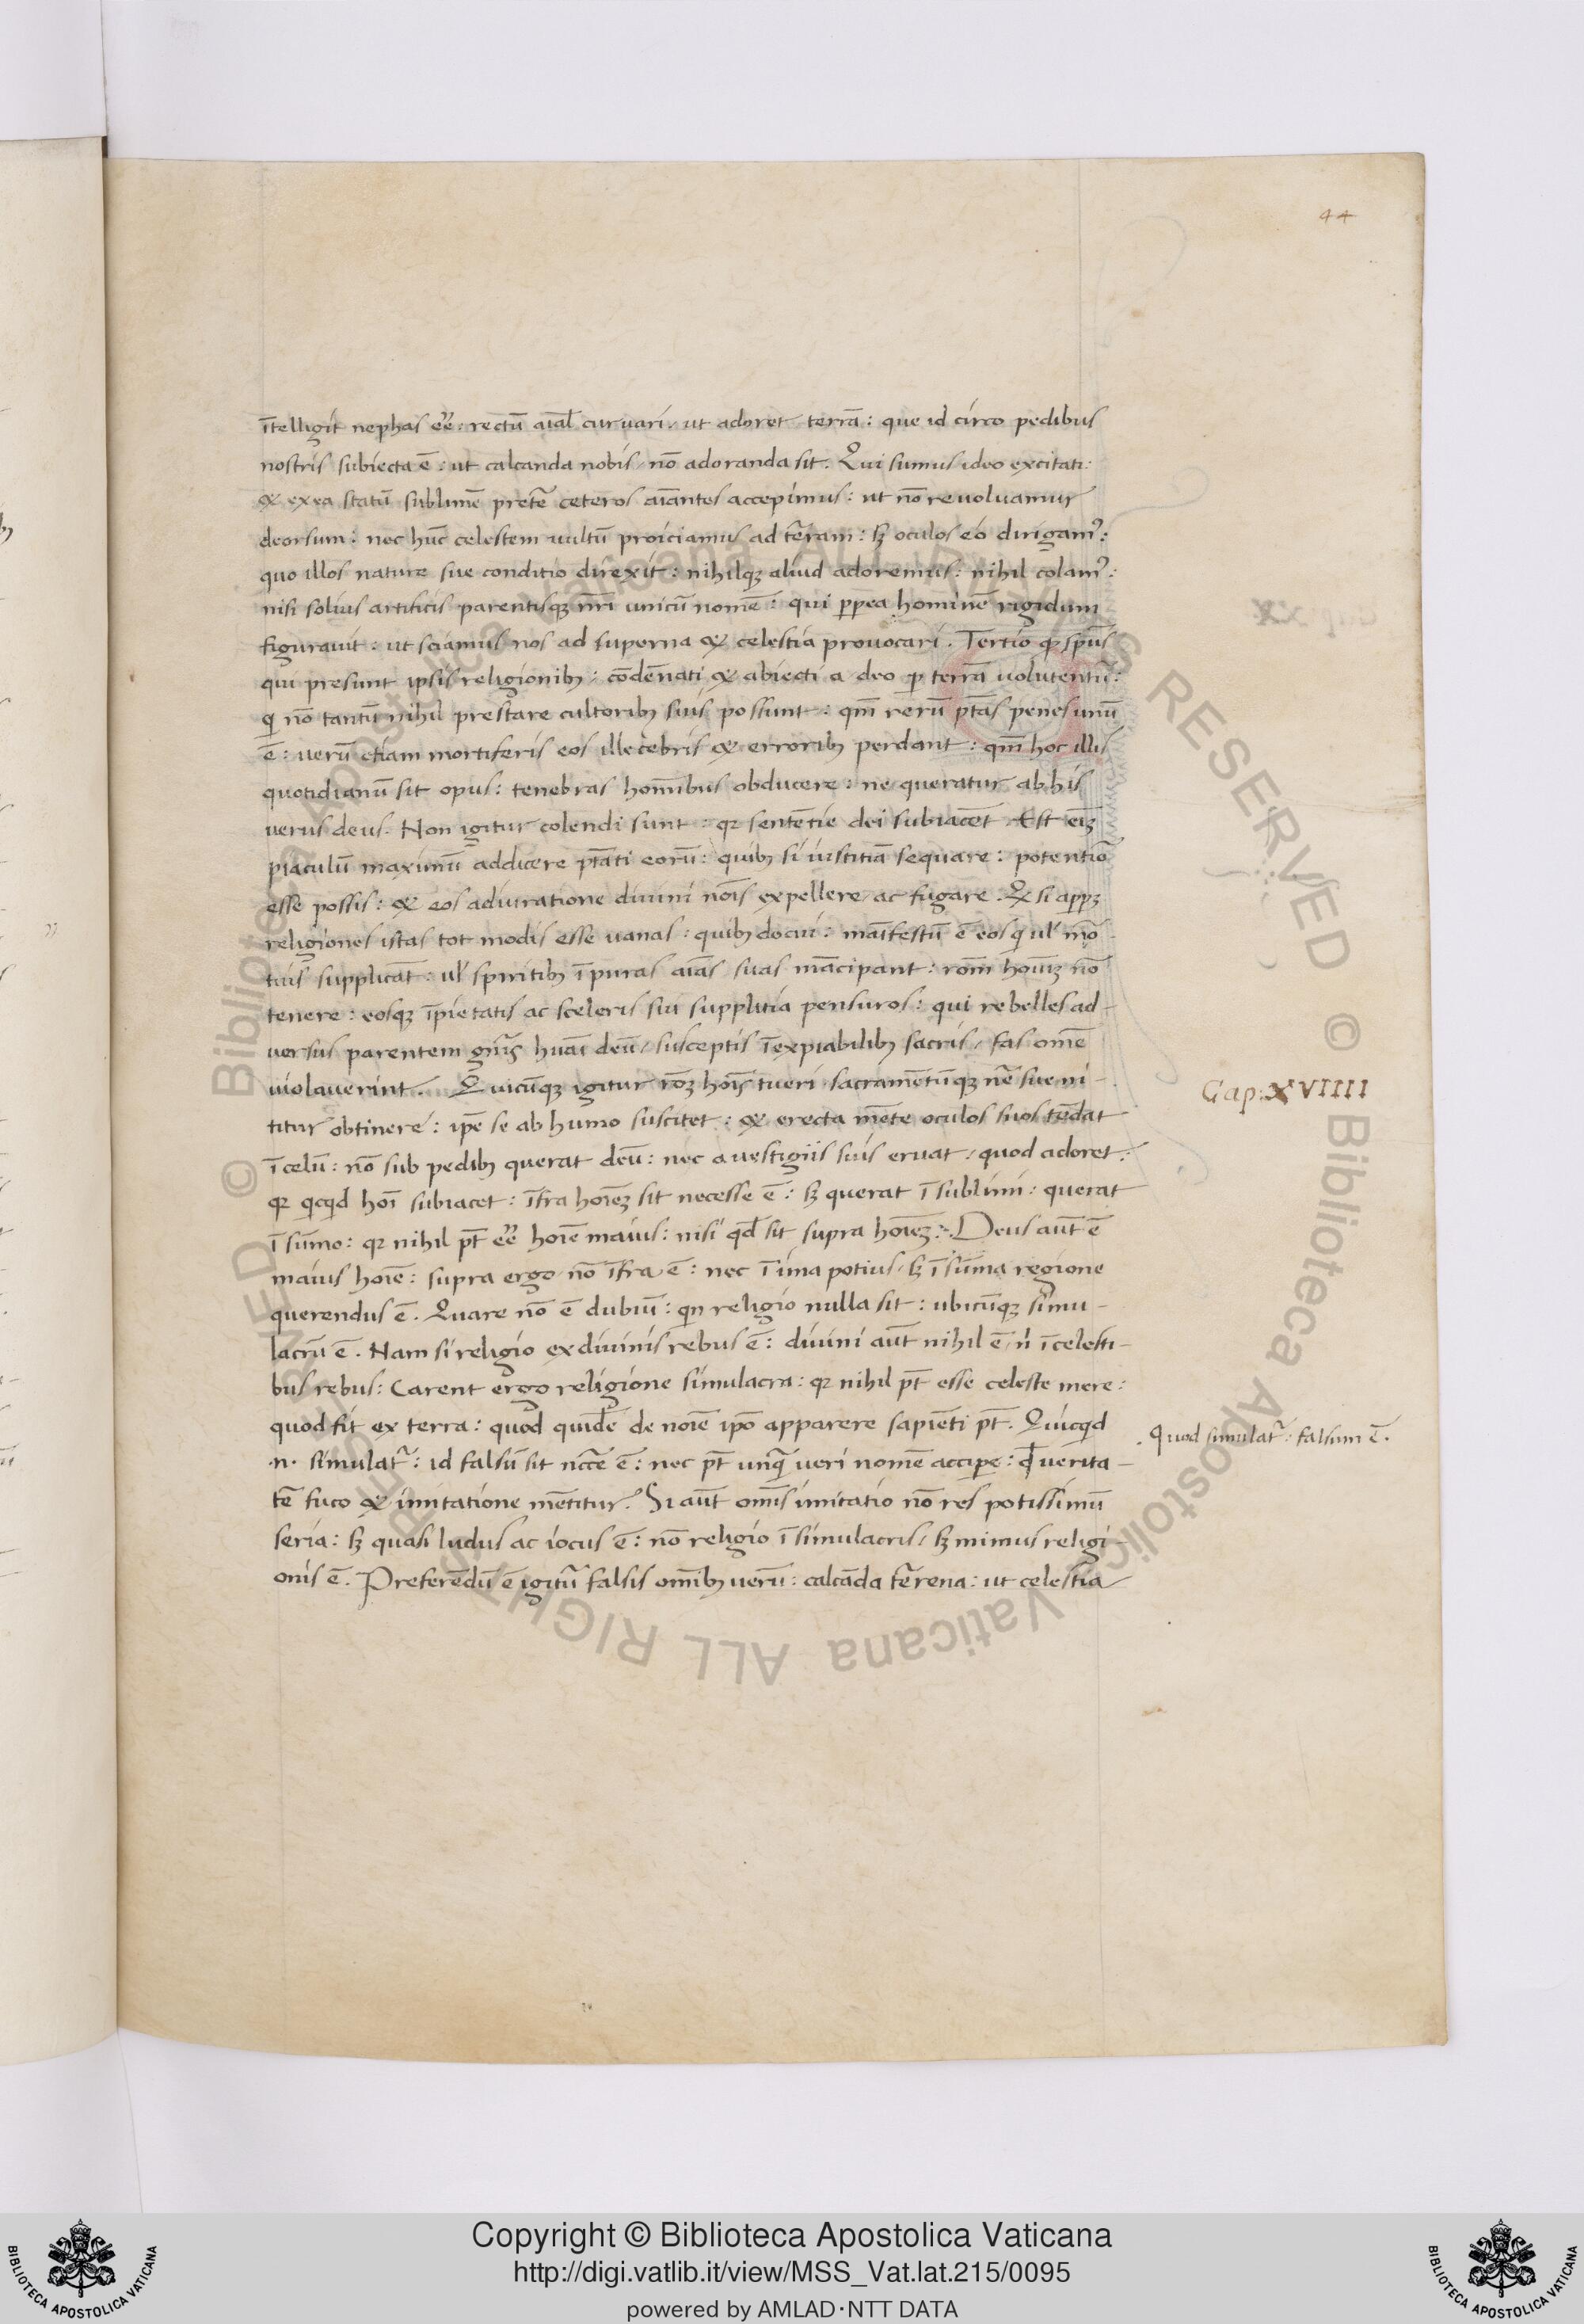 44
ītelligit nephas eē: rectū aīal curuari, ut adoret terrā: que id circo pedibus
nostris subiecta ē: ut calcanda nobis, nō adoranda sit. Qui sumus ideo excitati:
& ex ea statū sublimē pretē ceteros aīantes accepimus: ut nō reuoluamur
deorsum: nec hūc celestem uultū proiciamus ad tēram: sꝫ oculos eo dirigamꝰ:
quo illos nature sue conditio direxit: nihilqꝫ aliud adoremus: nihil colamꝰ:
nisi solius artificis parentisqꝫ nr̄i unicū nomē: qui ꝓpea hominē rigidum
figurauit: ut sciamus nos ad superna & celestia prouocari. Tertio ꝙ spūs
qui presunt ipsis religionibꝫ: cōdēnati & abiecti a deo ꝑ terrā uolutentur̄:
qi nō tantū nihil prestare cultoribꝫ suis possunt: qm̄ rerū ptās penes unū
ē: uerū etiam mortiferis eos illecebris & erroribꝫ perdant: qm̄ hoc illis
quotidianū sit opus: tenebras homībus obducere: ne queratur ab his
uerus deus. Non igitur colendi sunt: qꝛ sentētie dei subiacēt. Est eīꝫ
piaculū maximū addicere ptāti eorū: quibꝫ si iustitiā sequare: potentiō
esse possis: & eos adiuratione diuini nōis expellere ac fugare. Qꝫ si appꝫ
religiones istas tot modis esse uanas: quibꝫ docui: manīfestū ē eos qi ul' mō
tuis supplicāt: ul' spiritibꝫ īpuras aīas suas mācipant: rōm hoīūꝫ nō
tenere: eosqꝫ īpietatis ac sceleris sui supplitia pensuros: qui rebelles ad-
uersus parentem gn̄ris huāi deū, susceptis īexpiabilibꝫ sacris, fas omē
uiolauerint. Quicūqꝫ igitur rōꝫ hoīs tueri sacramētūqꝫ nē sue ni-
titur obtinere: ipē se ab humo suscitet: & erecta mēte oculos suos tēdat
ī celū: nō sub pedibꝫ querat deū: nec a uestigiis suis eruat, quod adoret:
qꝛ qicqid hoī subiacet: īfra hoīeꝫ sit necesse ē: sꝫ querat ī sublimi: querat
ī sūmo: qꝛ nihil pt̄ eē hoīe maius: nisi qd̄ sit supra hoīeꝫ. Deus aūt ē
maius hoīē: supra ergo nō īfra ē: nec ī ima potius, sꝫ ī sūma regione
querendus ē. Quare nō ē dubiū: qn religio nulla sit: ubicūqꝫ simu-
lacrū ē. Nam si religio ex diuinis rebus ē: diuini aūt nihil ē, ni ī celesti-
bus rebus: Carent ergo religione simulacra: qꝛ nihil pt̄ esse celeste in ere:
quod fit ex terra: quod quidē de noīe ipō apparere sapiēti pt̄. Quicqid
.n. simulatr̄: id falsū sit nccē ē: nec pt̄ unqā ueri nomē accipe: qd̄ uerita-
tē fuco & imitatione mētitur. Si aūt omīs imitatio nō res potissimū
seria: sꝫ quasi ludus ac iocus ē: nō religio ī simulacris, sꝫ mimus religi-
onis ē. Preferēdū ē igitū falsis omībꝫ uerū: calcāda tērena: ut celestia
Cap: XVIIII
Quod simulatr̄: falsum ē.
Copyright © Biblioteca Apostolica Vaticana
http://digi.vatlib.it/view/MSS_Vat.lat.215/0095
powered by AMLAD·NTT DATA
BIBLIOTECA APOSTOLICA VATICANA
BIBLIOTECA APOSTOLICA VATICANA
© Biblioteca Apostolica Vaticana ALL RIGHTS RESERVED © Biblioteca Apostolica Vaticana ALL RIGHTS RESERVED